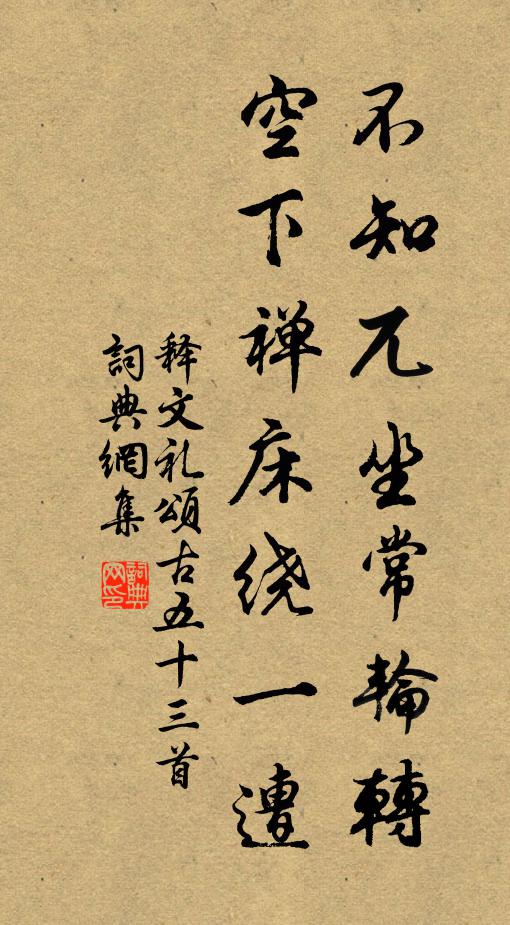 不知兀坐常輪轉
空下禅床绕一遭
释文礼頌古五十三首
詞典網集
詞典网印